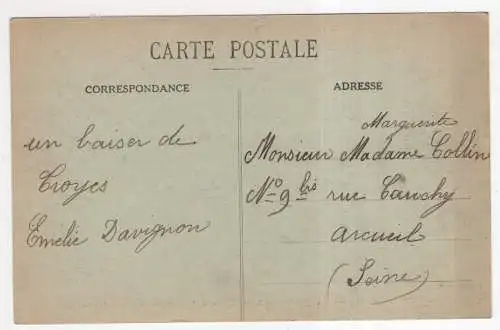 CARTE POSTALE
CORRESPONDANCE
un baiser de
Troyes
Emelie Davignon
ADRESSE
Marguerite
Monsieur Madame Collin
N° 9 bis rue Cauchy
arcueil
(Seine)